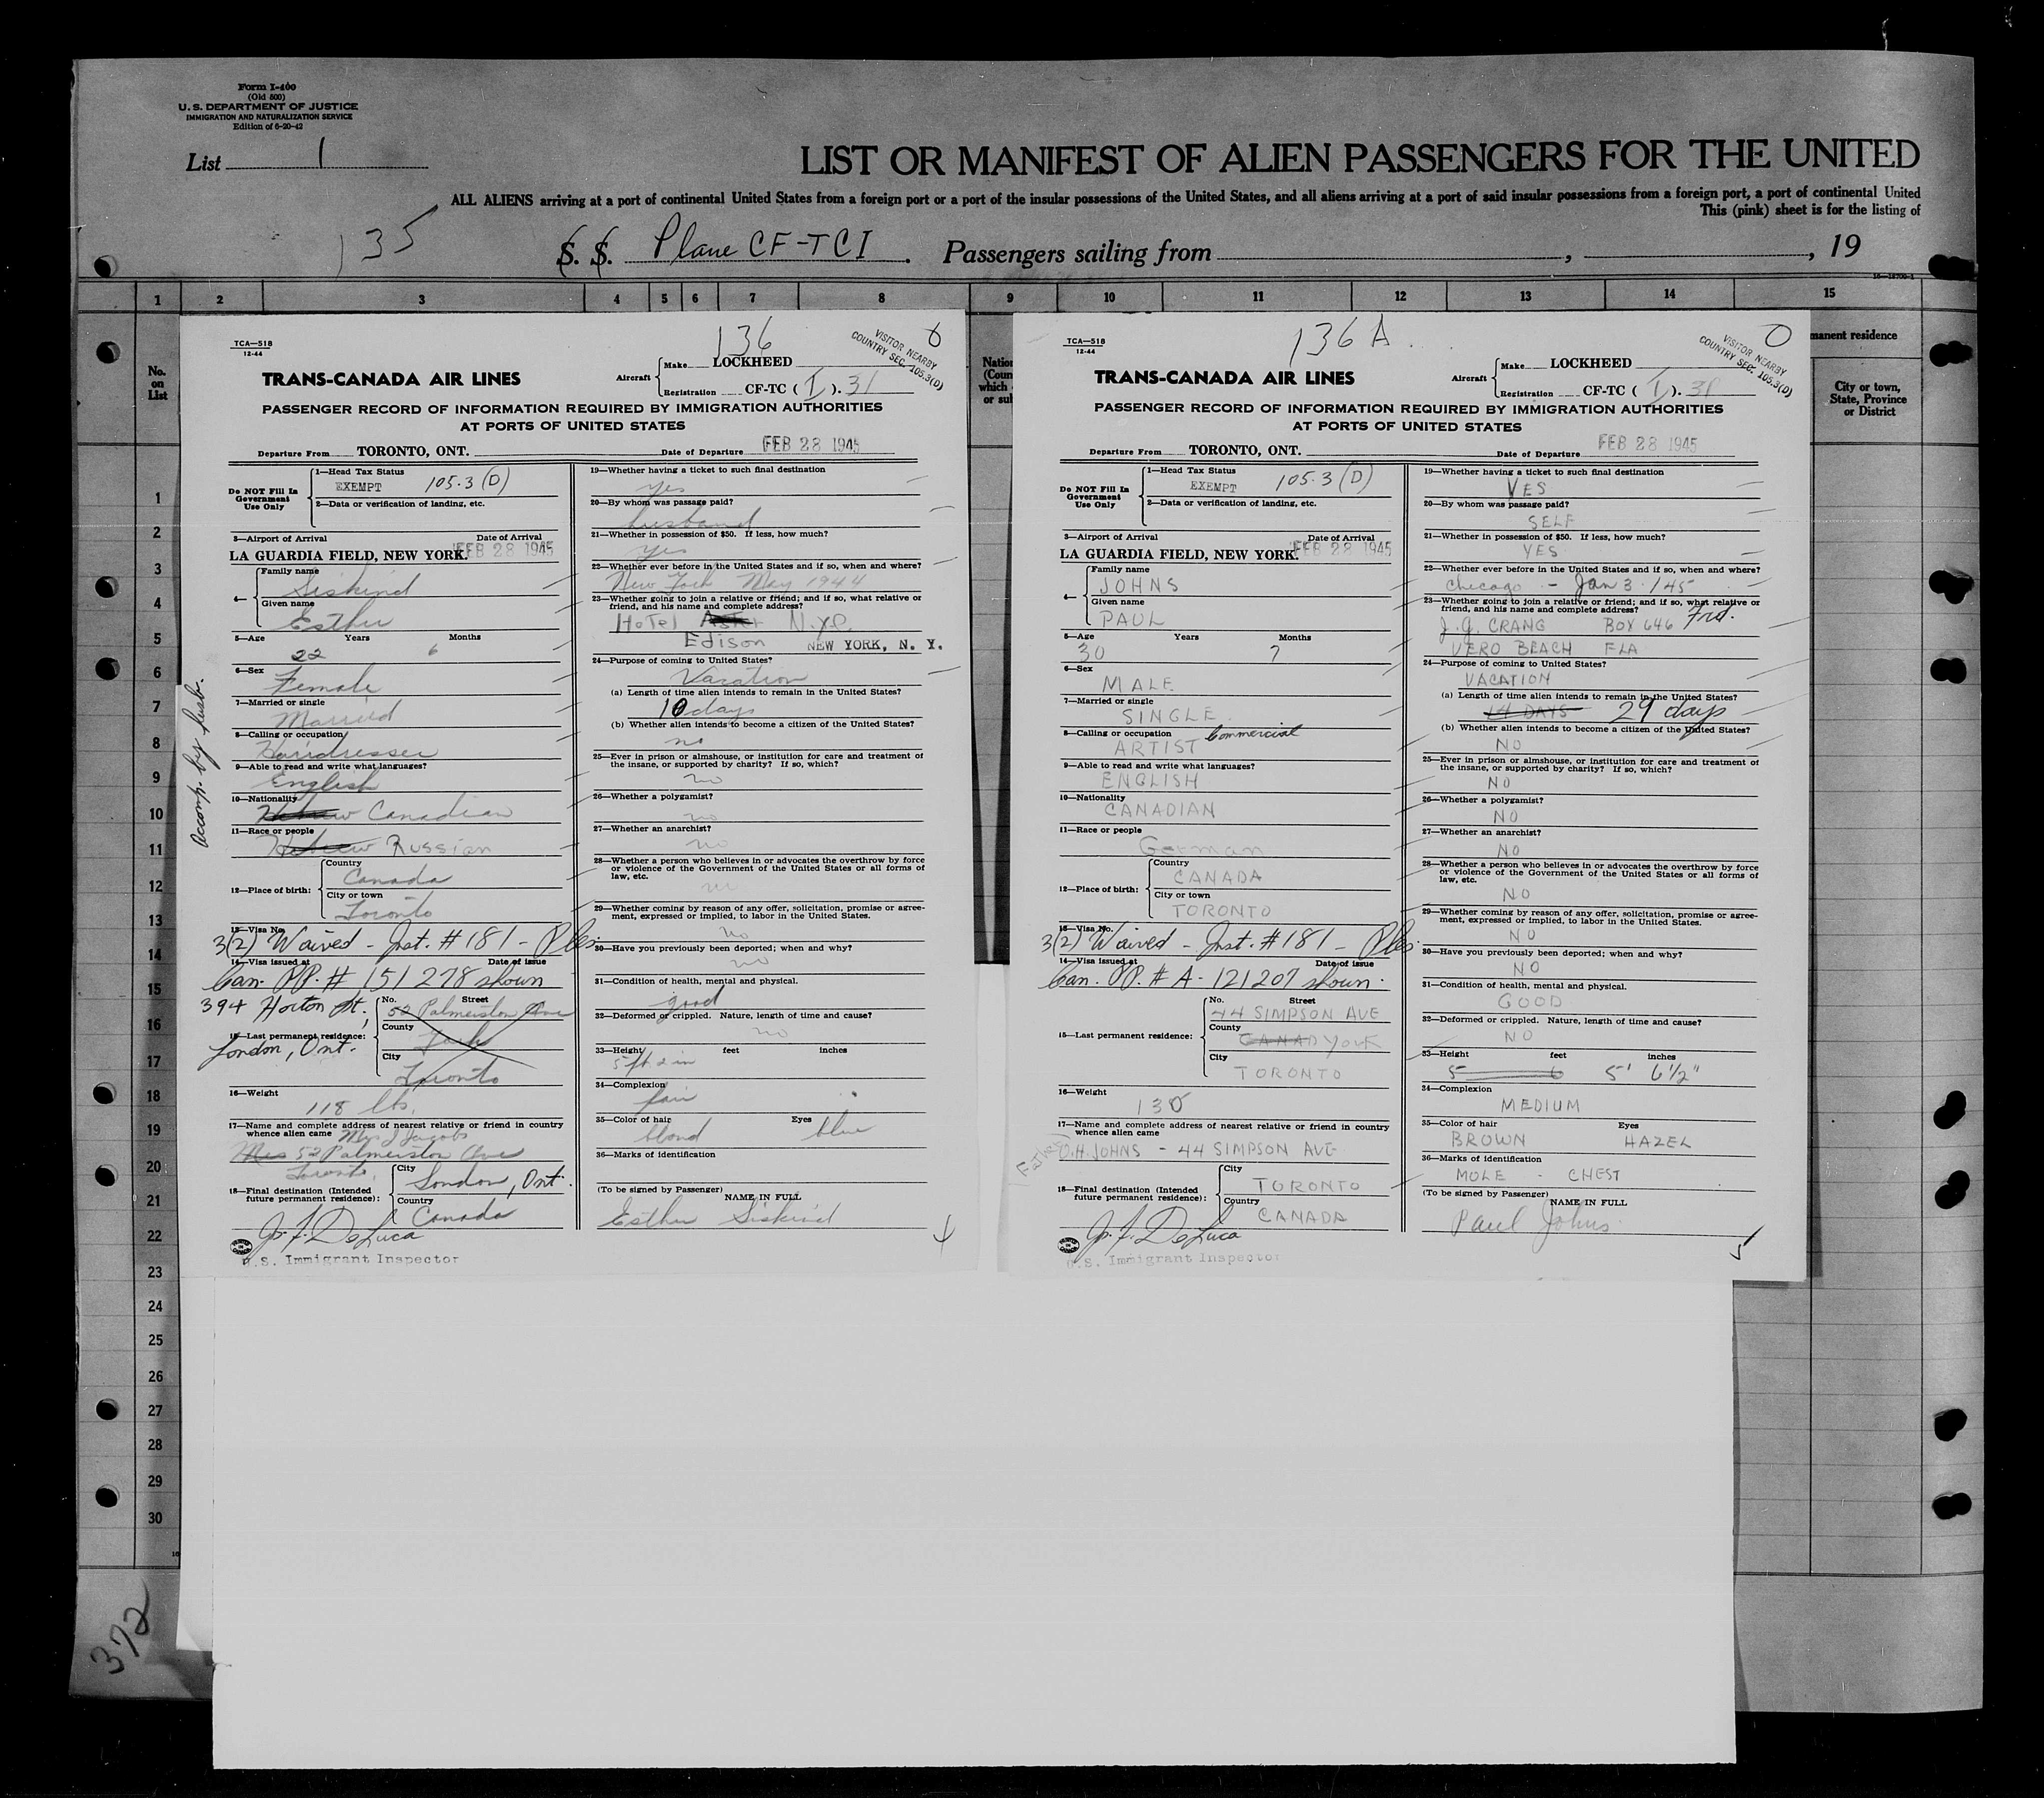 Form I-400
(Old 500)
U. S. DEPARTMENT OF JUSTICE
IMMIGRATION AND NATURALIZATION SERVICE
Edition of 6-20-42
List 1
LIST OR MANIFEST OF ALIEN PASSENGERS FOR THE UNITED
ALL ALIENS arriving at a port of continental United States from a foreign port or a port of the insular possessions of the United States, and all aliens arriving at a port of said insular possessions from a foreign port, a port of continental United
This (pink) sheet is for the listing of
135
S. S. Plane CF-TCI. Passengers sailing from , , 19
1 2 3 4 5 6 7 8 9 10 11 12 13 14 15
No.
on
List
1
2
3
4
5
6
7
8
9
10
11
12
13
14
15
16
17
18
19
20
21
22
23
24
25
26
27
28
29
30
372
Accomp. by husb.
TCA—518
12-44
136
VISITOR NEARBY
COUNTRY SEC. 105.3(D)
TRANS-CANADA AIR LINES
Aircraft
Make LOCKHEED
Registration CF-TC ( I ). 31
PASSENGER RECORD OF INFORMATION REQUIRED BY IMMIGRATION AUTHORITIES
AT PORTS OF UNITED STATES
Departure From TORONTO, ONT. Date of Departure FEB 28 1945
Do NOT Fill In
Government
Use Only
1—Head Tax Status
EXEMPT 105.3 (D)
2—Data or verification of landing, etc.
3—Airport of Arrival Date of Arrival
LA GUARDIA FIELD, NEW YORK. FEB 28 1945
4—
Family name
Siskind
Given name
Esther
5—Age Years Months
22 6
6—Sex
Female
7—Married or single
Married
8—Calling or occupation
Hairdresser
9—Able to read and write what languages?
English
10—Nationality
Hebrew Canadian
11—Race or people
Hebrew Russian
12—Place of birth:
Country
Canada
City or town
Toronto
13—Visa No.
3(2) Waived - Inst. #181 -
14—Visa issued at Date of issue
Can. PP. # 151278 shown
394 Horton St.,
London, Ont.
15—Last permanent residence:
No. Street
52 Palmerston Ave
County
York
City
Toronto
16—Weight
118 lbs.
17—Name and complete address of nearest relative or friend in country
whence alien came Mrs J Jacobs
Mrs 52 Palmerston Ave
Toronto.
18—Final destination (Intended
future permanent residence):
City
London, Ont.
Country
Canada
Jo. J. DeLuca
U.S. Immigrant Inspector
19—Whether having a ticket to such final destination
yes
20—By whom was passage paid?
husband
21—Whether in possession of $50. If less, how much?
yes
22—Whether ever before in the United States and if so, when and where?
New York May 1944
23—Whether going to join a relative or friend; and if so, what relative or
friend, and his name and complete address?
Hotel Astor N.Y.C.
Edison NEW YORK, N. Y.
24—Purpose of coming to United States?
Vacation
(a) Length of time alien intends to remain in the United States?
10 days
(b) Whether alien intends to become a citizen of the United States?
no
25—Ever in prison or almshouse, or institution for care and treatment of
the insane, or supported by charity? If so, which?
no
26—Whether a polygamist?
no
27—Whether an anarchist?
no
28—Whether a person who believes in or advocates the overthrow by force
or violence of the Government of the United States or all forms of
law, etc.
no
29—Whether coming by reason of any offer, solicitation, promise or agree-
ment, expressed or implied, to labor in the United States.
no
30—Have you previously been deported; when and why?
no
31—Condition of health, mental and physical.
good
32—Deformed or crippled. Nature, length of time and cause?
no
33—Height feet inches
5 ft. 2 in
34—Complexion
fair
35—Color of hair Eyes
blond blue
36—Marks of identification
(To be signed by Passenger)
NAME IN FULL
Esther Siskind
Nation
(Coun
which
or sub
TCA—518
12-44
136 A.
VISITOR NEARBY
COUNTRY SEC. 105.3(D)
TRANS-CANADA AIR LINES
Aircraft
Make LOCKHEED
Registration CF-TC ( I ). 31
PASSENGER RECORD OF INFORMATION REQUIRED BY IMMIGRATION AUTHORITIES
AT PORTS OF UNITED STATES
Departure From TORONTO, ONT. Date of Departure FEB 28 1945
Do NOT Fill In
Government
Use Only
1—Head Tax Status
EXEMPT 105.3 (D)
2—Data or verification of landing, etc.
3—Airport of Arrival Date of Arrival
LA GUARDIA FIELD, NEW YORK. FEB 28 1945
4—
Family name
JOHNS
Given name
PAUL
5—Age Years Months
30 7
6—Sex
MALE
7—Married or single
SINGLE
8—Calling or occupation Commercial
ARTIST
9—Able to read and write what languages?
ENGLISH
10—Nationality
CANADIAN
11—Race or people
German
12—Place of birth:
Country
CANADA
City or town
TORONTO
13—Visa No.
3(2) Waived - Inst. #181 -
14—Visa issued at Date of issue
Can. PP. # A-121207 shown.
15—Last permanent residence:
No. Street
44 SIMPSON AVE
County
CANAD York
City
TORONTO
16—Weight
130
17—Name and complete address of nearest relative or friend in country
whence alien came
(Father) O.H. JOHNS - 44 SIMPSON AVE
18—Final destination (Intended
future permanent residence):
City
TORONTO
Country
CANADA
Jo. J. DeLuca
U.S. Immigrant Inspector
19—Whether having a ticket to such final destination
YES
20—By whom was passage paid?
SELF
21—Whether in possession of $50. If less, how much?
YES
22—Whether ever before in the United States and if so, when and where?
Chicago - Jan 3 /45
23—Whether going to join a relative or friend; and if so, what relative or
friend, and his name and complete address?
J. G. CRANG BOX 646 Frd.
VERO BEACH FLA
24—Purpose of coming to United States?
VACATION
(a) Length of time alien intends to remain in the United States?
14 DAYS 29 days
(b) Whether alien intends to become a citizen of the United States?
NO
25—Ever in prison or almshouse, or institution for care and treatment of
the insane, or supported by charity? If so, which?
NO
26—Whether a polygamist?
NO
27—Whether an anarchist?
NO
28—Whether a person who believes in or advocates the overthrow by force
or violence of the Government of the United States or all forms of
law, etc.
NO
29—Whether coming by reason of any offer, solicitation, promise or agree-
ment, expressed or implied, to labor in the United States.
NO
30—Have you previously been deported; when and why?
NO
31—Condition of health, mental and physical.
GOOD
32—Deformed or crippled. Nature, length of time and cause?
NO
33—Height feet inches
5 6 5' 6½"
34—Complexion
MEDIUM
35—Color of hair Eyes
BROWN HAZEL
36—Marks of identification
MOLE - CHEST
(To be signed by Passenger)
NAME IN FULL
Paul Johns
manent residence
City or town,
State, Province
or District